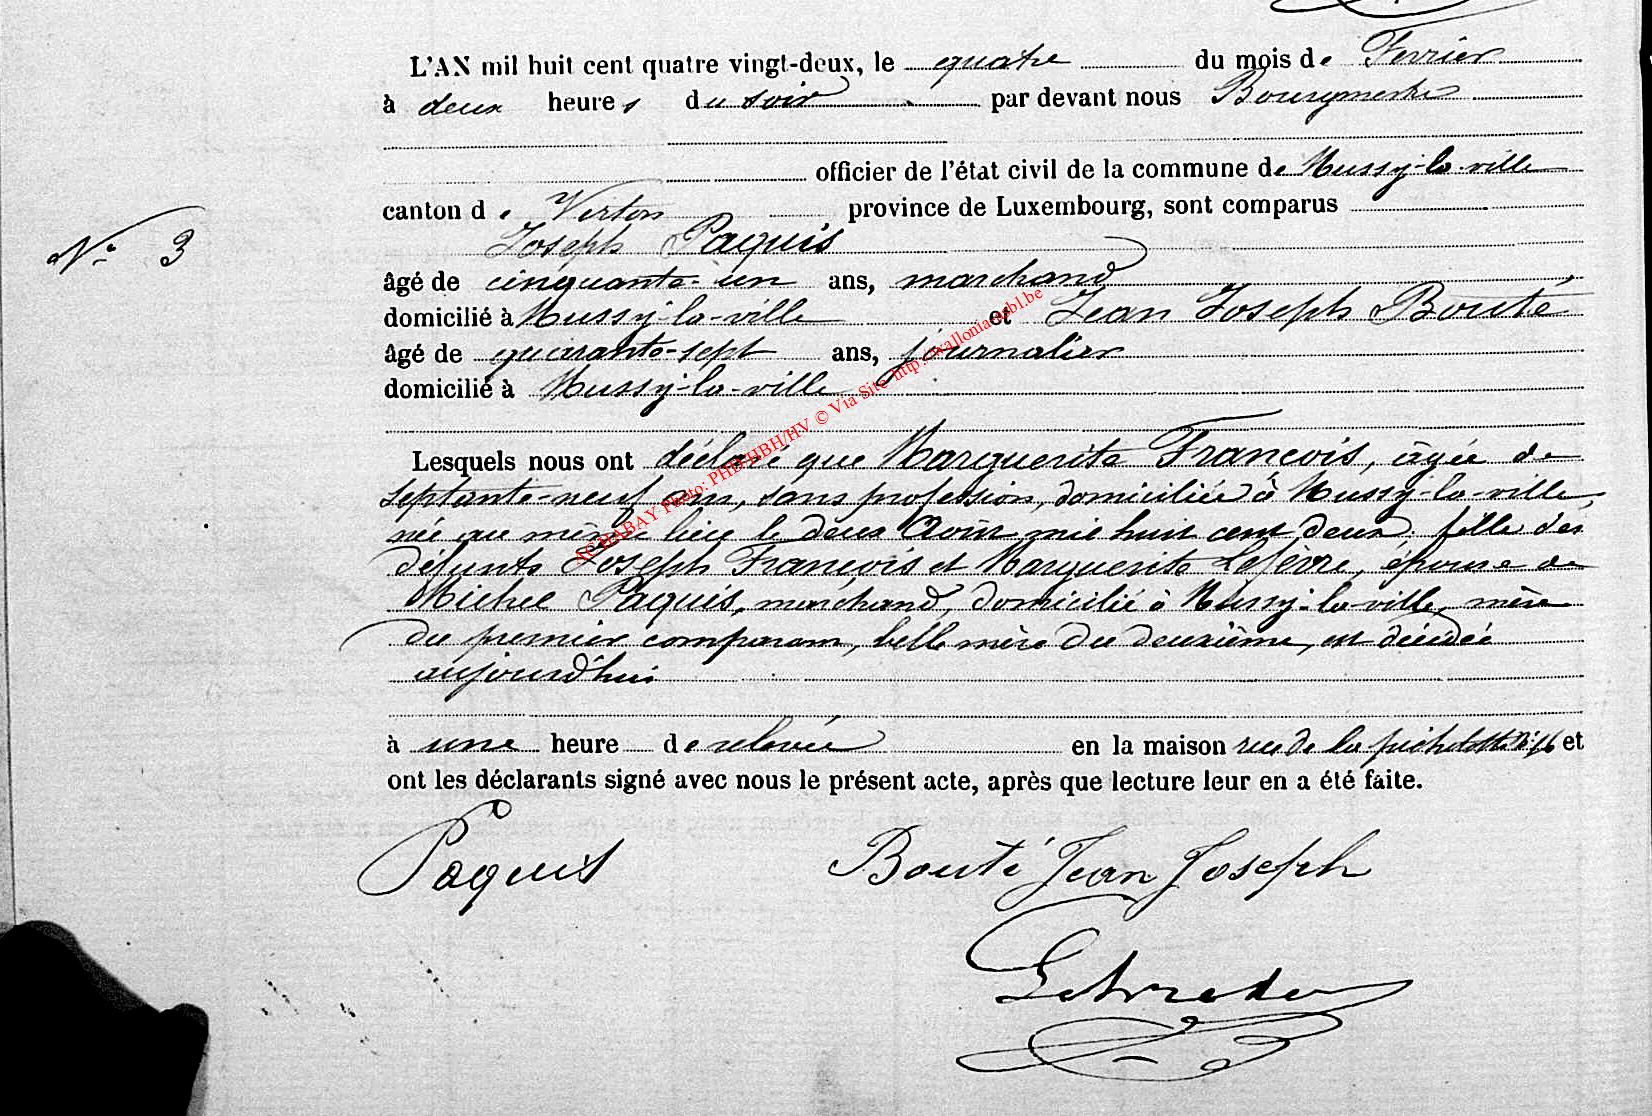 L'AN mil huit cent quatre vingt-deux, le quatre du mois de Fevrier
à deux heures du soir par devant nous Bourgmestre
officier de l'état civil de la commune de Mussy-la-ville
canton de Virton province de Luxembourg, sont comparus
Joseph Paquis
N° 3
âgé de cinquante-un ans, marchand
domicilié à Mussy-la-ville et Jean Joseph Bouté
âgé de quarante-sept ans, journalier
domicilié à Mussy-la-ville
Lesquels nous ont déclaré que Marguerite François, âgée de
septante-neuf ans, sans profession, domiciliée à Mussy-la-ville,
née au même lieu le deux Août mil huit cent deux, fille des
défunts Joseph François et Marguerite Lefèvre, épouse de
Michel Paquis, marchand, domicilié à Mussy-la-ville, mère
du premier comparant, belle mère du deuxième, est décédée
aujourd'hui
à une heure de relevée en la maison rue de la N° 16 et
ont les déclarants signé avec nous le présent acte, après que lecture leur en a été faite.
Paquis Bouté Jean Joseph
SCHABAY Photo: PHD/HBH/HV © Via Site http://wallonia-asbl.be